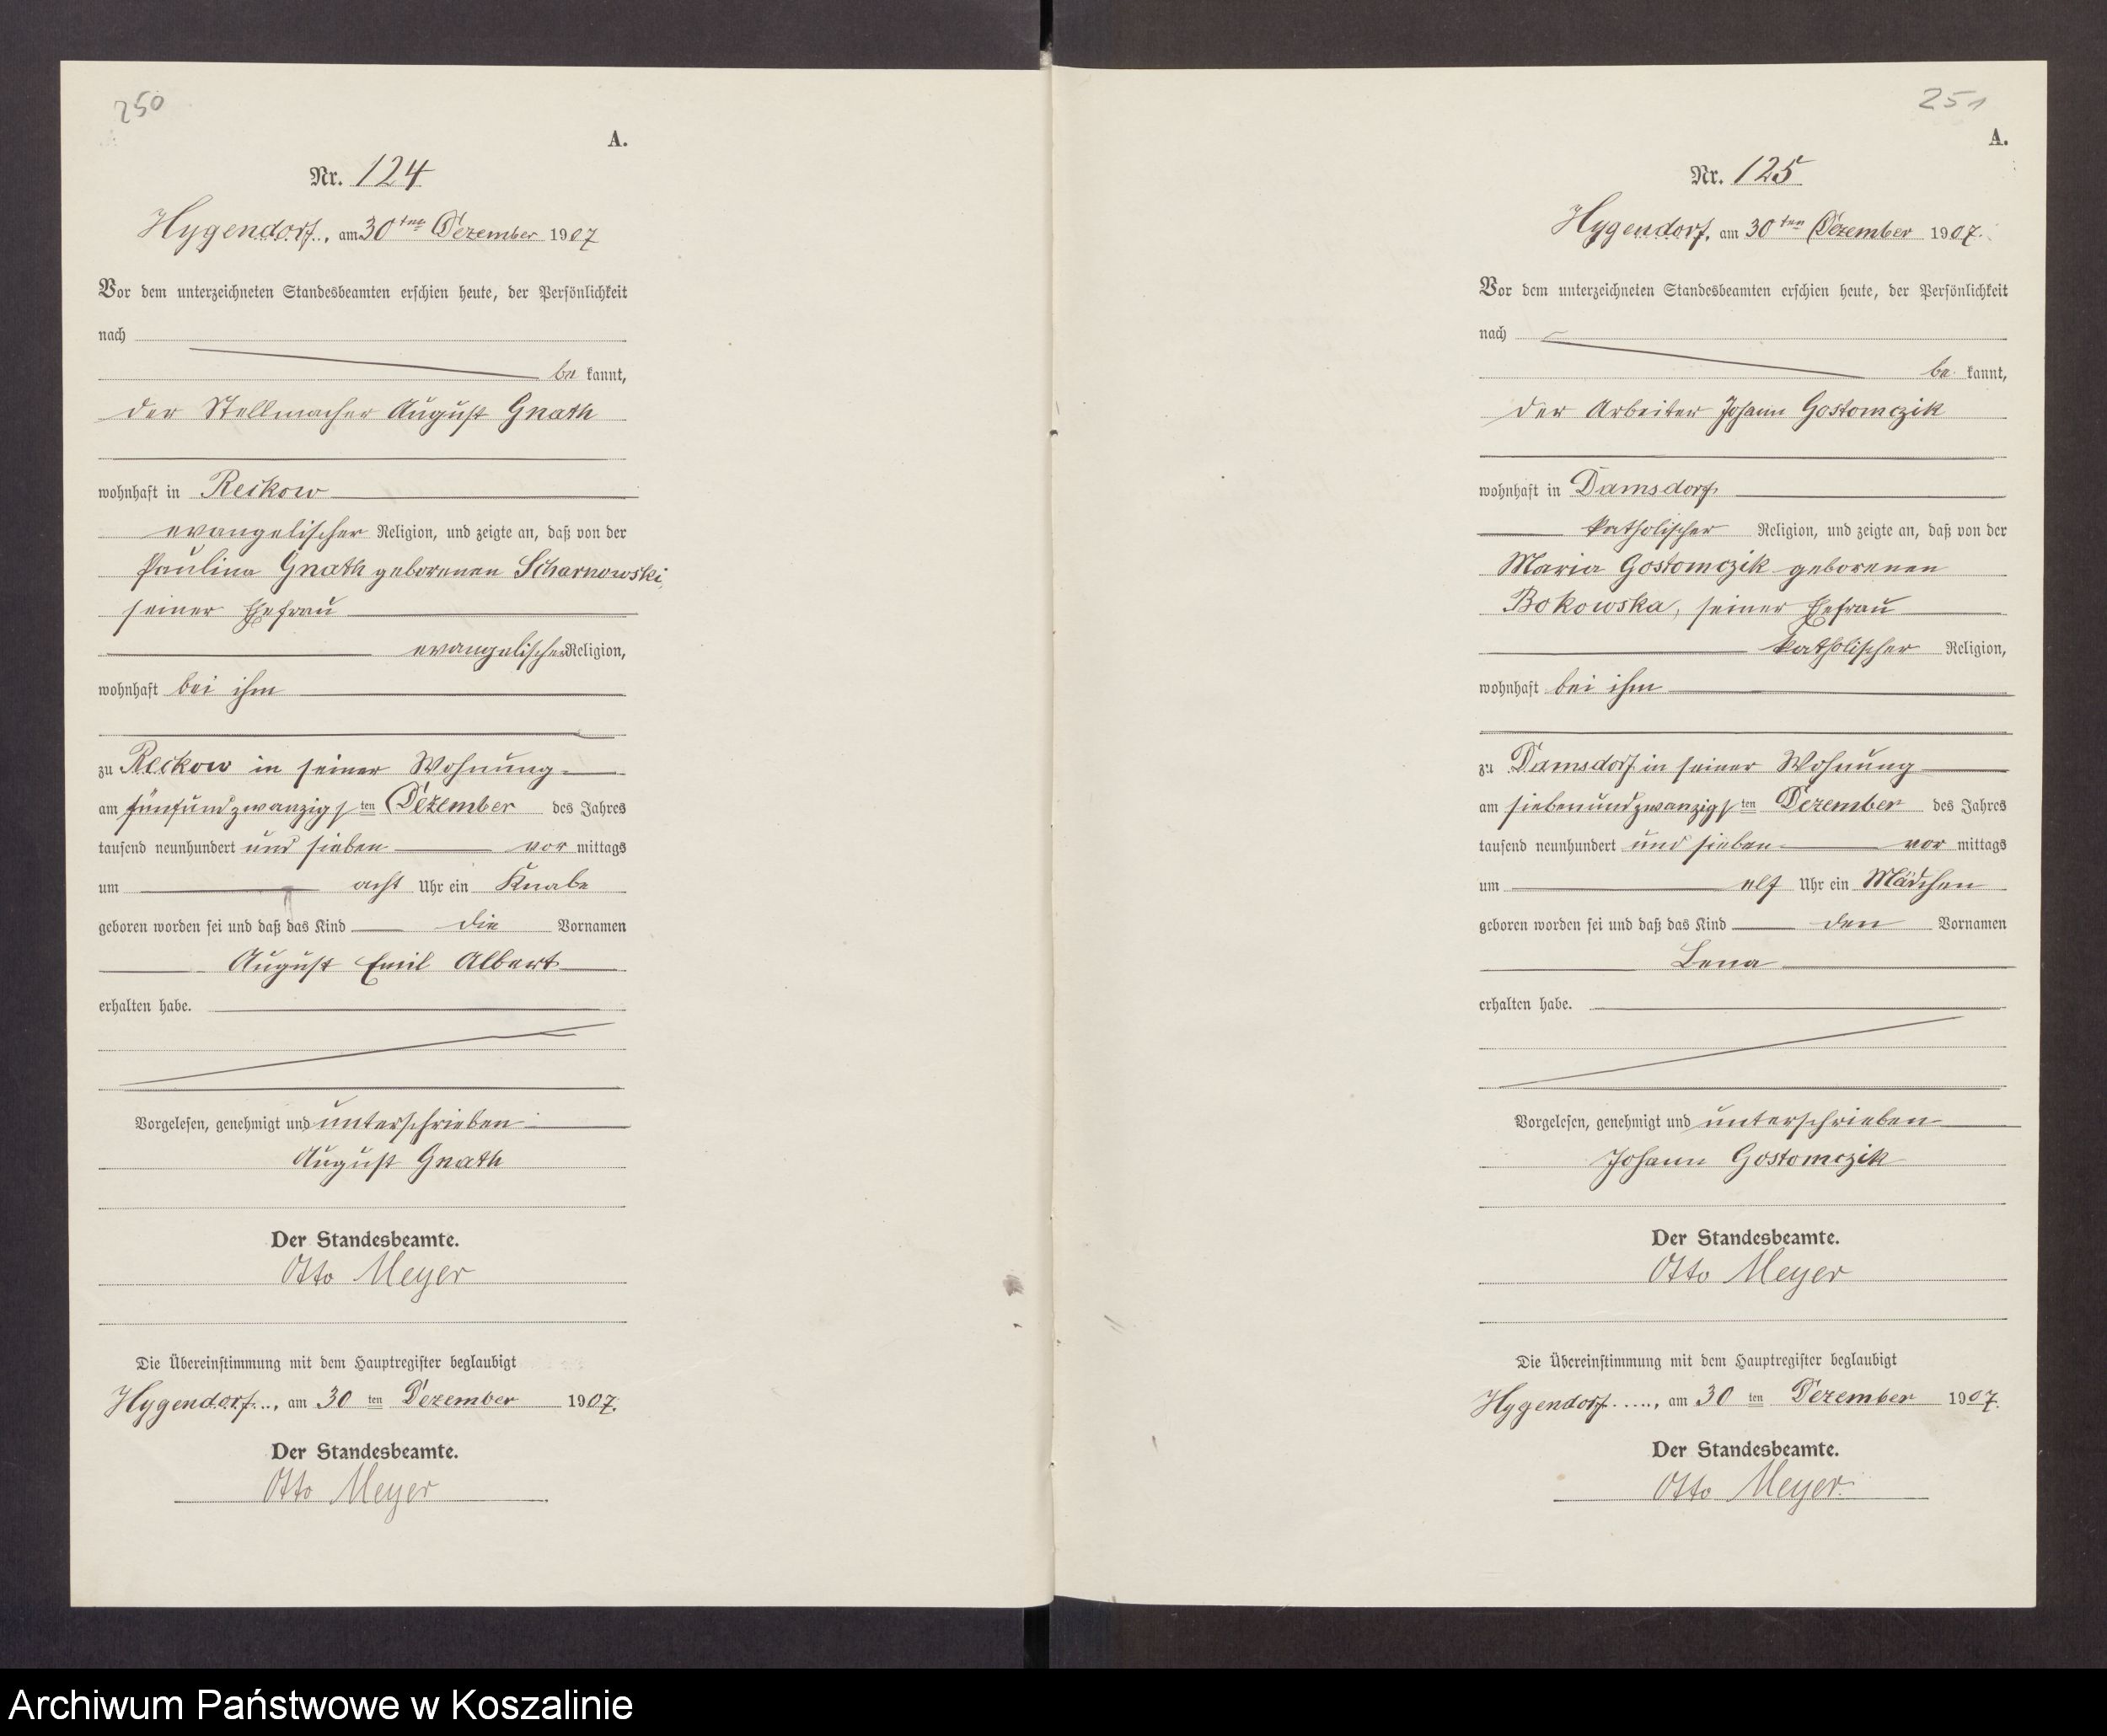 250
A.
Nr. 124
Hygendorf, am 30ten Dezember 1907
Vor dem unterzeichneten Standesbeamten erschien heute, der Persönlichkeit
nach
be kannt,
der Stellmacher August Gnath
wohnhaft in Reckow
evangelischer Religion, und zeigte an, daß von der
Pauline Gnath geborenen Scharnowski,
seiner Ehefrau
evangelischer Religion,
wohnhaft bei ihm
zu Reckow in seiner Wohnung
am fünfundzwanzigsten Dezember des Jahres
tausend neunhundert und sieben vor mittags
um acht Uhr ein Knabe
geboren worden sei und daß das Kind die Vornamen
August Emil Albert
erhalten habe.
Vorgelesen, genehmigt und unterschrieben
August Gnath
Der Standesbeamte.
Otto Meyer
Die Übereinstimmung mit dem Hauptregister beglaubigt
Hygendorf, am 30 ten Dezember 1907.
Der Standesbeamte.
Otto Meyer
251
A.
Nr. 125
Hygendorf, am 30ten Dezember 1907.
Vor dem unterzeichneten Standesbeamten erschien heute, der Persönlichkeit
nach
be kannt,
der Arbeiter Johann Gostomczik
wohnhaft in Damsdorf
katholischer Religion, und zeigte an, daß von der
Maria Gostomczik geborenen
Bokowska, seiner Ehefrau
katholischer Religion,
wohnhaft bei ihm
zu Damsdorf in seiner Wohnung
am siebenundzwanzigsten Dezember des Jahres
tausend neunhundert und sieben vor mittags
um elf Uhr ein Mädchen
geboren worden sei und daß das Kind den Vornamen
Lena
erhalten habe.
Vorgelesen, genehmigt und unterschrieben
Johann Gostomczik
Der Standesbeamte.
Otto Meyer
Die Übereinstimmung mit dem Hauptregister beglaubigt
Hygendorf, am 30 ten Dezember 1907.
Der Standesbeamte.
Otto Meyer.
Archiwum Państwowe w Koszalinie